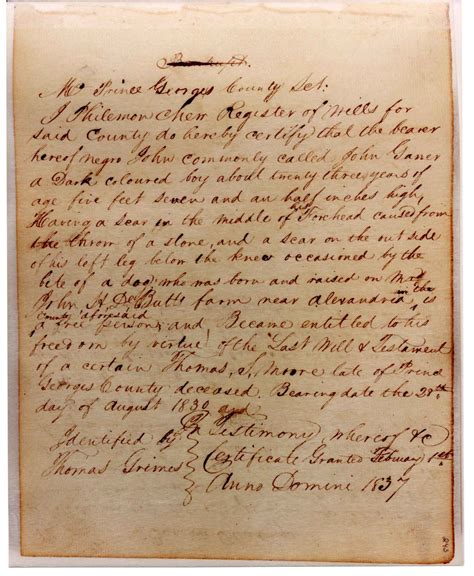 Md Prince Georges County Sct:
I Philemon Chew Register of Wills for
said County do hereby certify that the bearer
hereof negro John commonly called John Ganer
a Dark coloured boy about twenty three years of
age five feet seven and an half inches high,
Having a scar in the middle of his Forehead caused from
the throw of a stone, and a scar on the out side
of his left leg below the knee occasioned by the
bite of a dog who was born and raised on
John H. DeButts farm near alexandria, in the County aforesaid is
a free person, and Became entitled to his
freedom by virtue of the Last Will & Testament
of a certain Thomas S. Moore late of Prince
Georges County deceased. Bearing date the 28th
day of August 1830 and
Identified by
Thomas Grimes
In Testimony whereof &c
Certificate Granted February 1st
Anno Domini 1837